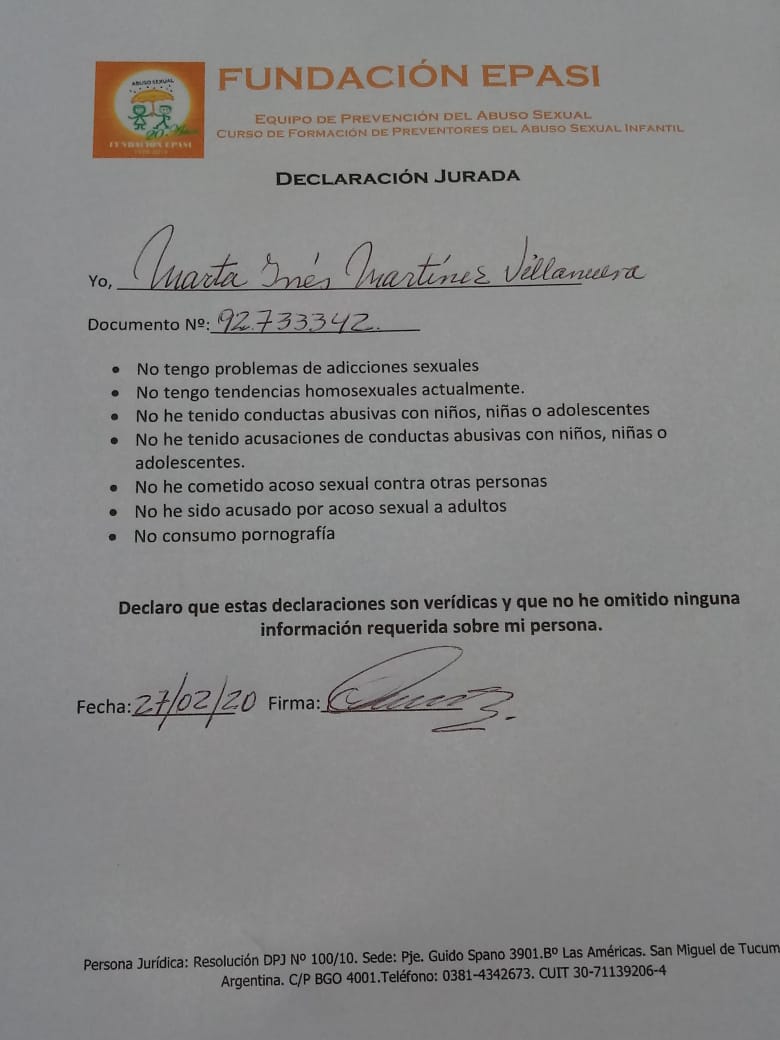 ABUSO SEXUAL
FUNDACIÓN EPASI
FUNDACIÓN EPASI
EQUIPO DE PREVENCIÓN DEL ABUSO SEXUAL
CURSO DE FORMACIÓN DE PREVENTORES DEL ABUSO SEXUAL INFANTIL
DECLARACIÓN JURADA
Yo, Marta Inés Martínez Villanueva
Documento Nº: 92.733342.
• No tengo problemas de adicciones sexuales
• No tengo tendencias homosexuales actualmente.
• No he tenido conductas abusivas con niños, niñas o adolescentes
• No he tenido acusaciones de conductas abusivas con niños, niñas o
adolescentes.
• No he cometido acoso sexual contra otras personas
• No he sido acusado por acoso sexual a adultos
• No consumo pornografía
Declaro que estas declaraciones son verídicas y que no he omitido ninguna
información requerida sobre mi persona.
Fecha: 27/02/20 Firma:
Persona Jurídica: Resolución DPJ Nº 100/10. Sede: Pje. Guido Spano 3901.Bº Las Américas. San Miguel de Tucum
Argentina. C/P BGO 4001.Teléfono: 0381-4342673. CUIT 30-71139206-4